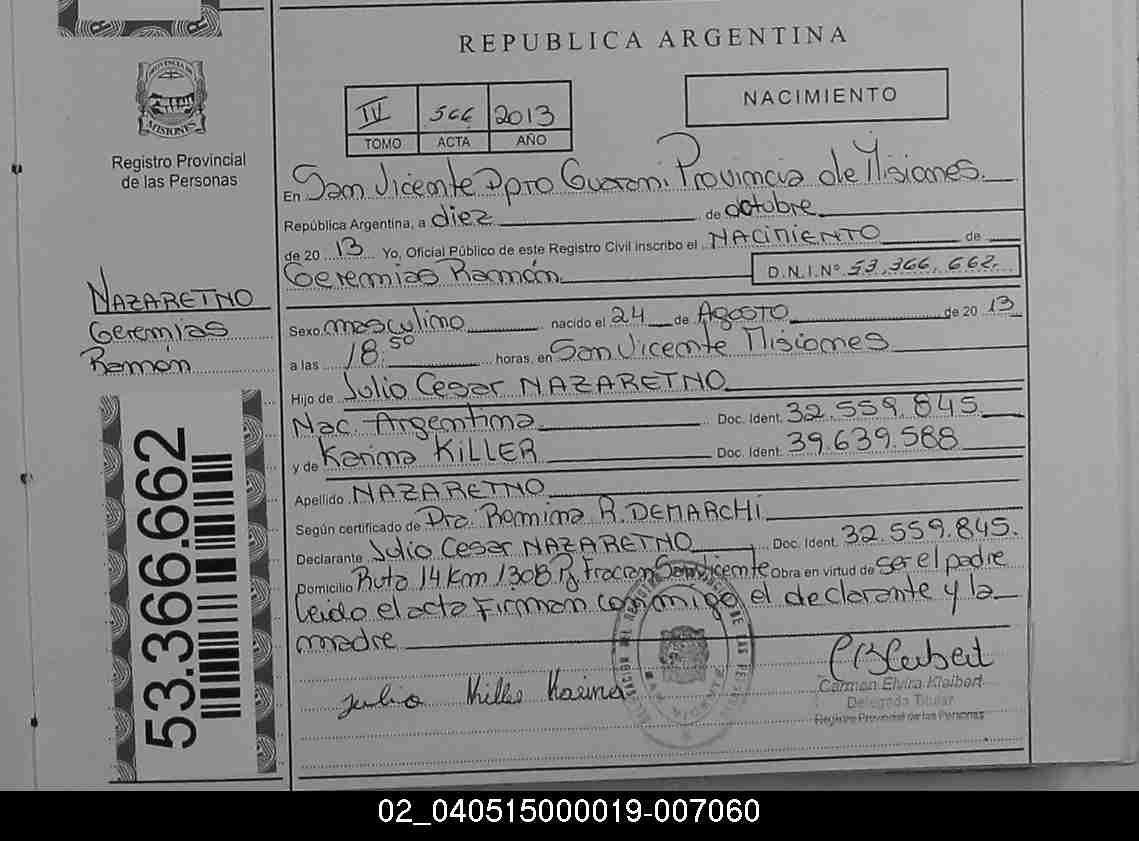 REPUBLICA ARGENTINA
PROVINCIA DE
MISIONES
Registro Provincial
de las Personas
IV 566 2013
TOMO ACTA AÑO
NACIMIENTO
En San Vicente Dpto Guarani Provincia de Misiones.
República Argentina, a diez de octubre
de 20 13 Yo, Oficial Público de este Registro Civil inscribo el NACIMIENTO de
Geremias Ramón D.N.I.Nº 53.366.662.
Sexo masculino nacido el 24 de AGOSTO de 20 13
a las 18:50 horas, en San Vicente Misiones
Hijo de Julio Cesar NAZARETNO
Nac. Argentina Doc. Ident. 32.559.845
y de Karina KILLER Doc. Ident. 39.639.588
Apellido NAZARETNO
Según certificado de Dra. Romina R. DEMARCHI
Declarante Julio Cesar NAZARETNO Doc. Ident. 32.559.845.
Domicilio Ruta 14 Km 1308 Fracran San Vicente Obra en virtud de ser el padre
Leido el acta Firman conmigo el declarante y la
madre
Julio Karina
Carmen Elvira Kleibert
Delegada Titular
Registro Provincial de las Personas
NAZARETNO
Geremias
Ramón
53.366.662
02_040515000019-007060